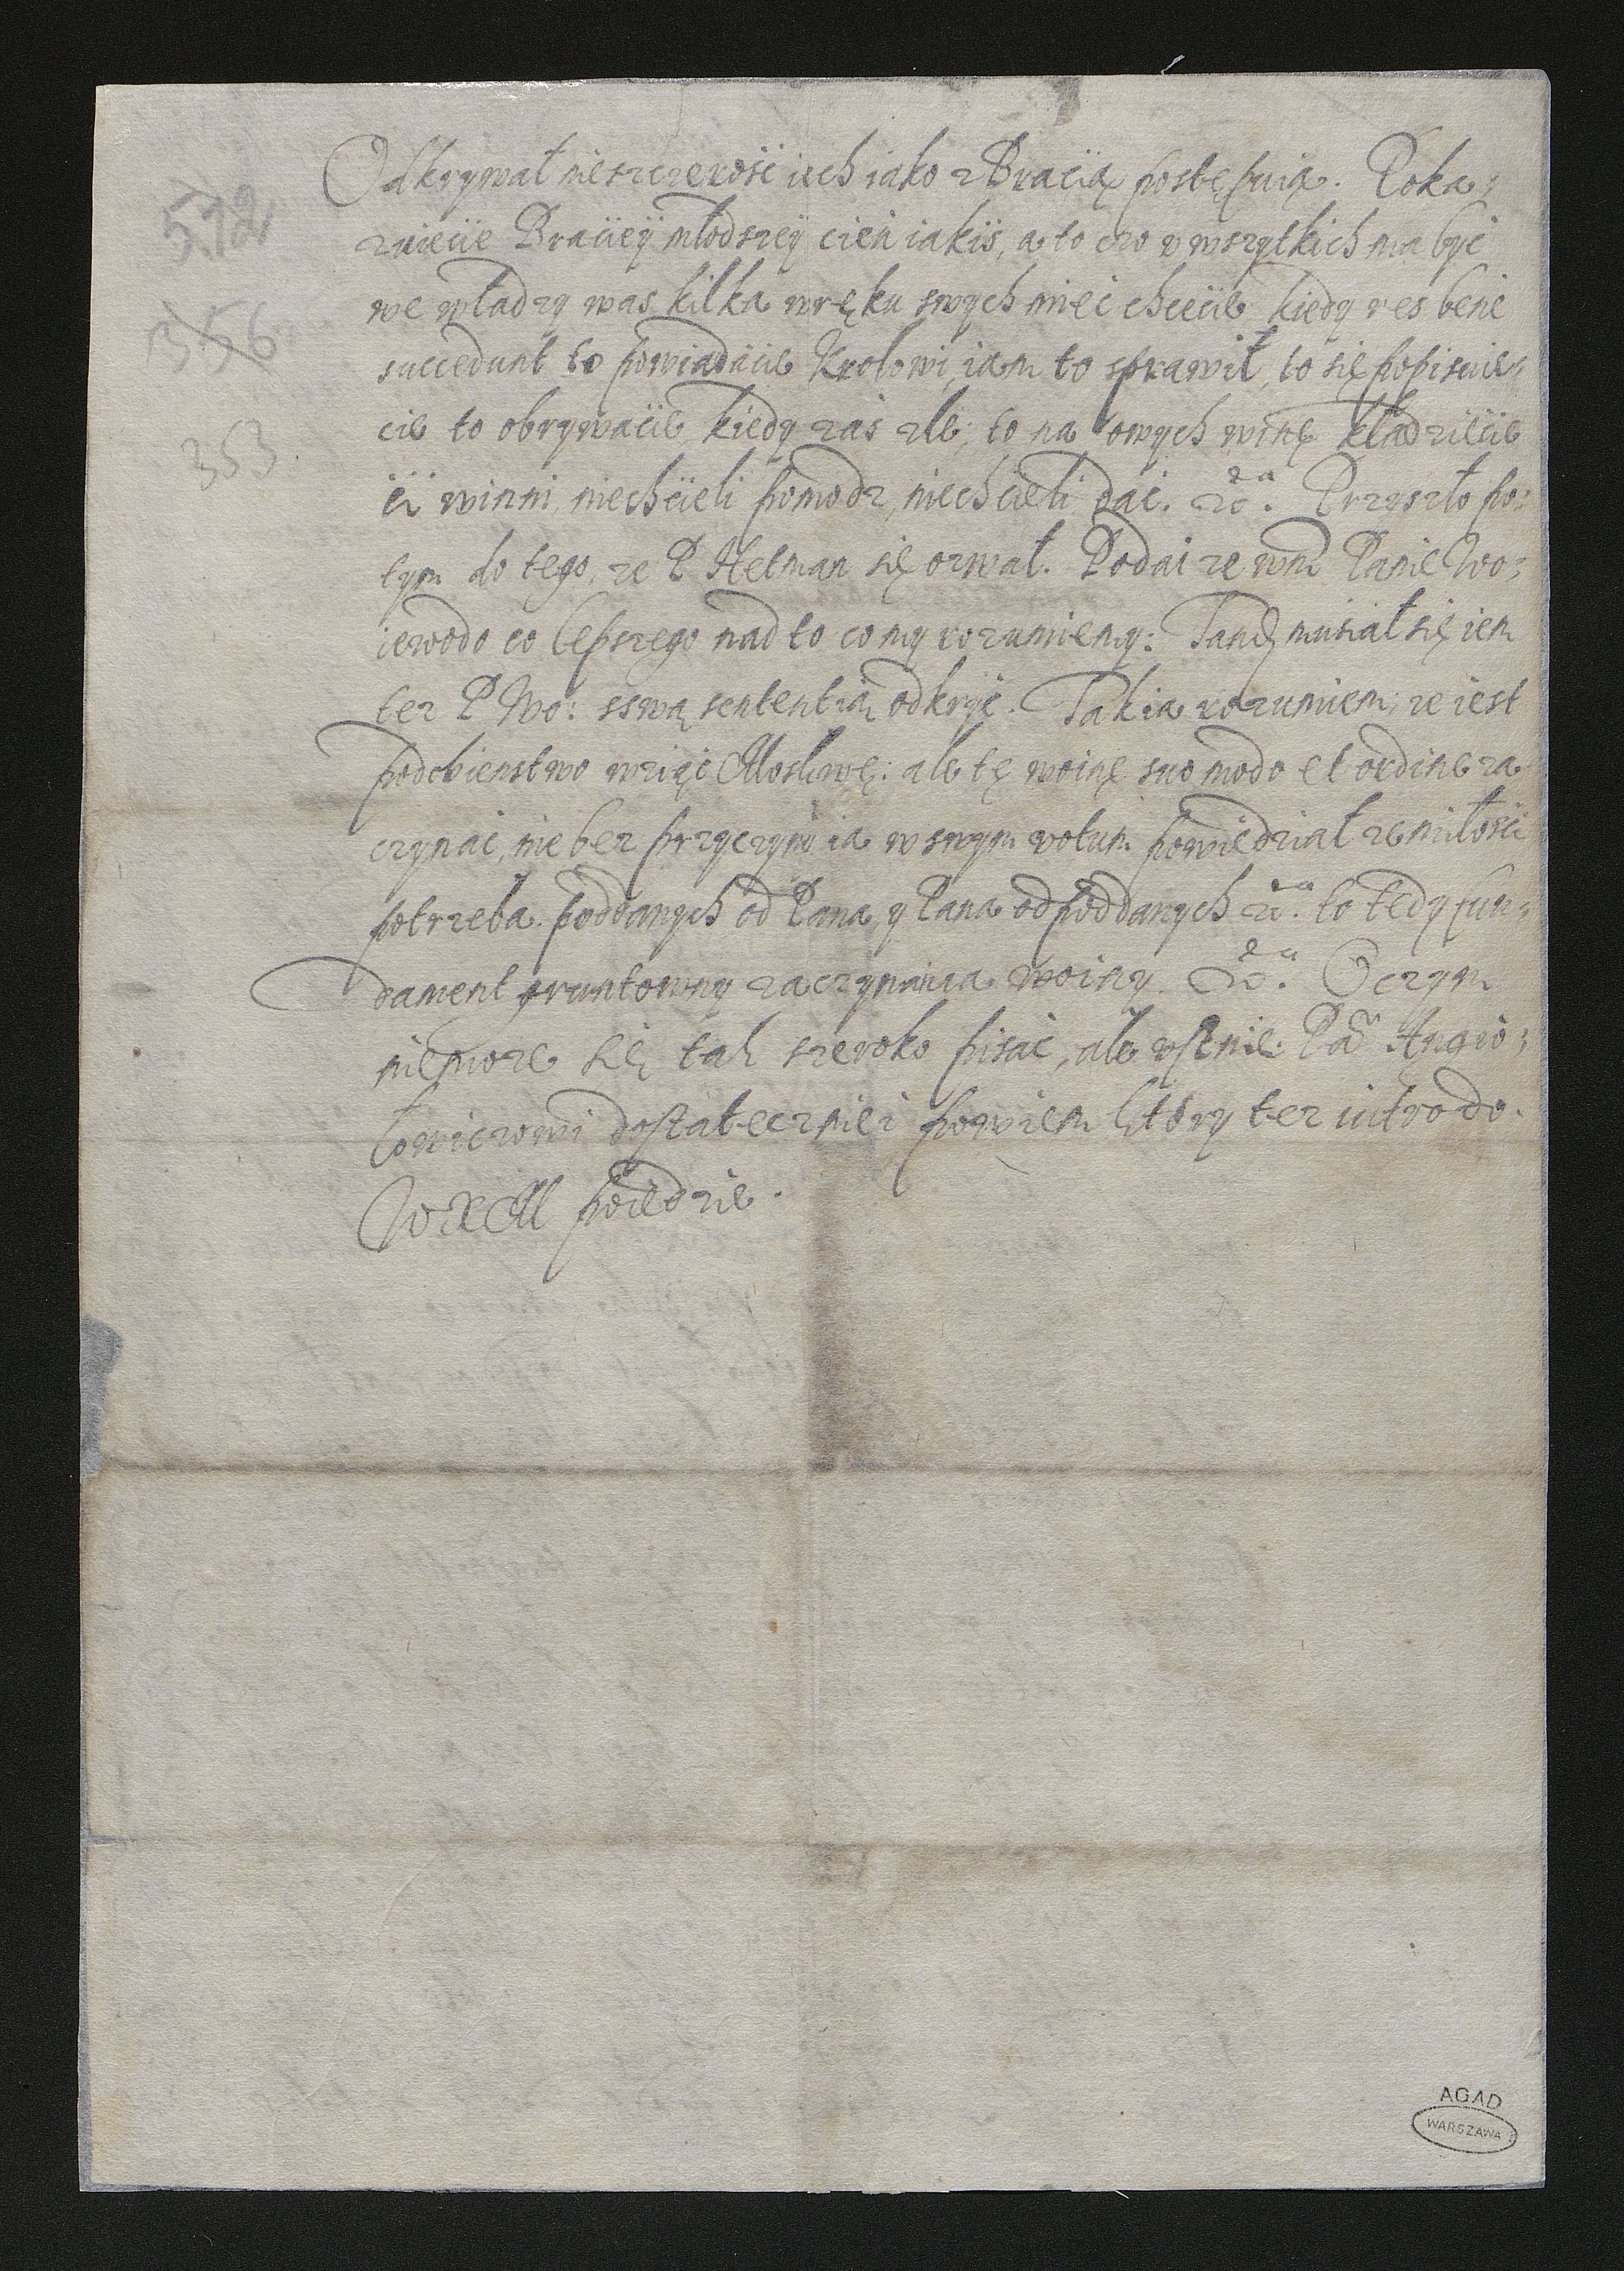 512
356
353.
Odkrywał nieszczerość ich iako z Bracią postępuią. Poka:
zuiecie Bracieÿ młodszeÿ cień iakiś, a to czo v wszytkich ma być
we władzy was kilka w ręku swych mieć chcecie, kiedy res bene
succedunt to powiadacie Krolowi, iam to sprawił, to się popisuie:
cie to obrywacie, kiedy zas zle, to na owych winę kładziecie
ci winni, niechcieli pomodz, niechcieli dać. &ca. Przyszło po:
tym do tego, ze P Hetman się ozwał. Podai ze wm Panie Wo:
iewodo co lepszego nad to co my rozumiemy: Tandem musiał się iem
tez P Wo: sswą sententią odkryć. Tak ia rozumiem, ze iest
podobienstwo wziąć Moskwę: ale tę woinę suo modo et ordine za
czynać, nie bez przyczyny ia w swym votum powiedział ze miłości
potrzeba poddanych od Pana, y Pana od poddanych &ca. to tedy fun:
dament gruntowny zaczynania woiny. &ca. O czym
niemoze się tak szeroko pisać, ale vstnie Pa Angio:
łowiczowi dostateczniei powiem ktory tez iutro do
W X M poiedzie.
AGAD
WARSZAWA